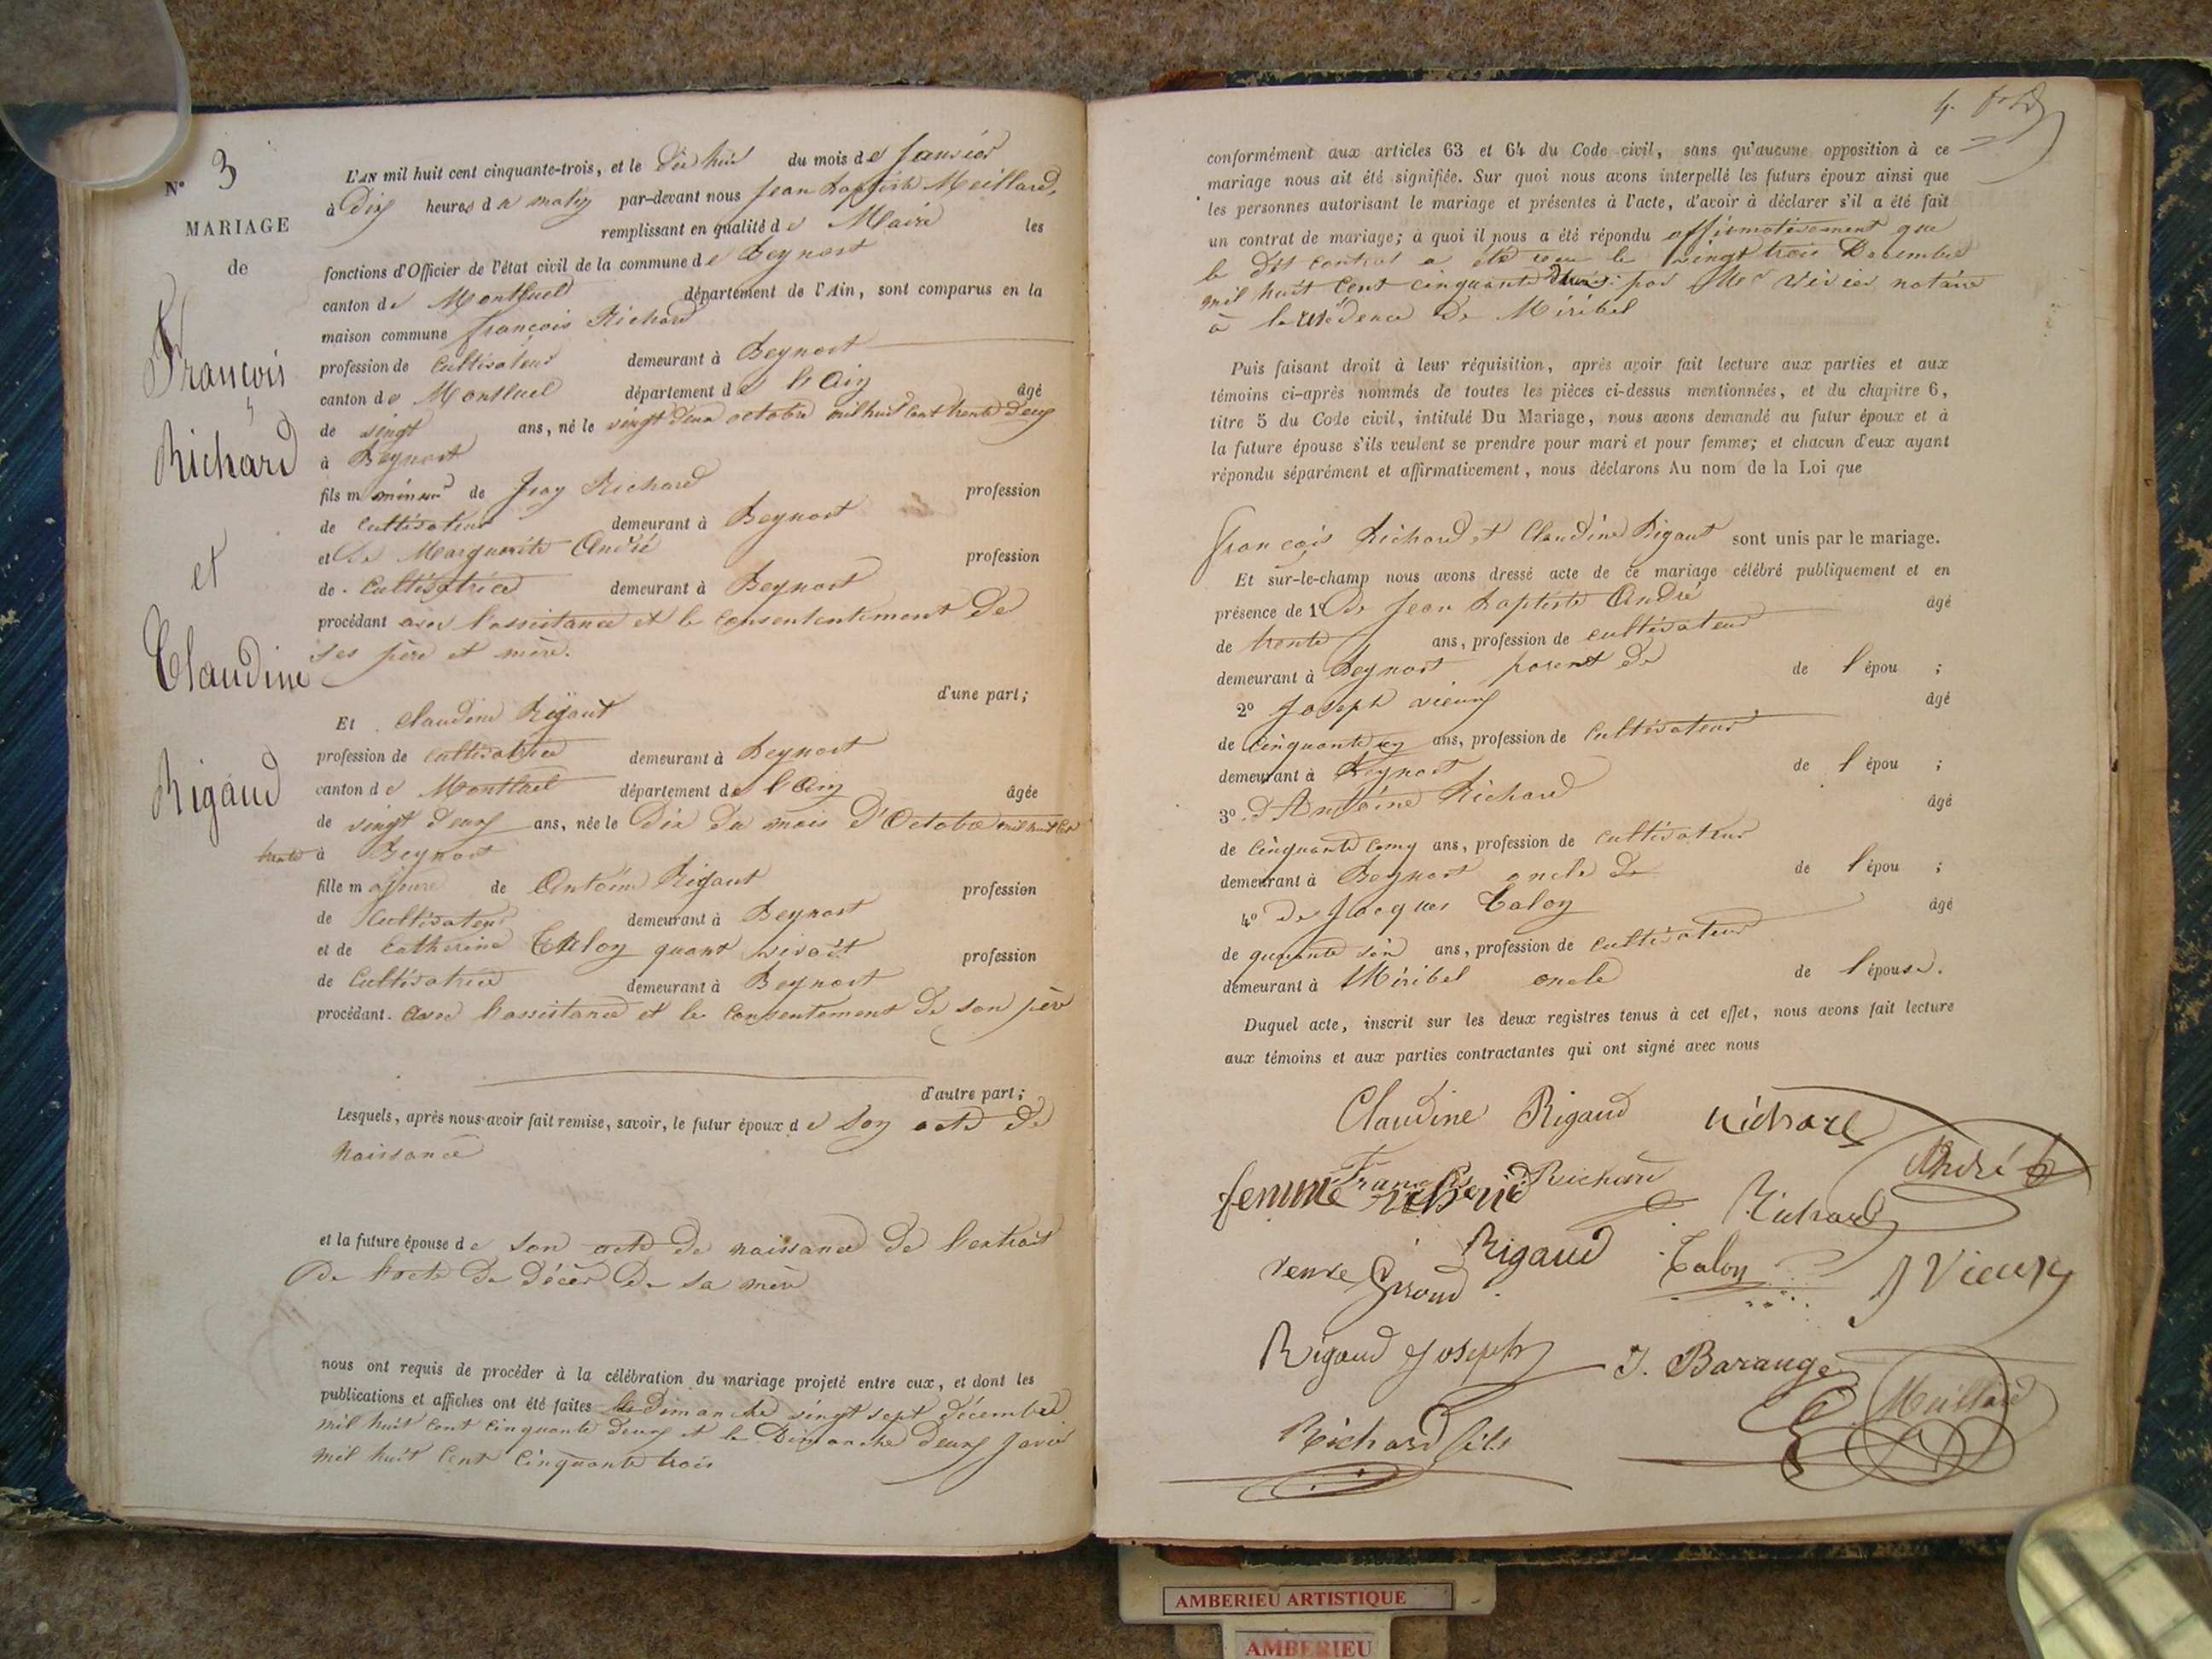 N° 3
MARIAGE
de
François
Richard
et
Claudine
Rigaud
L'AN mil huit cent cinquante-trois, et le dix huit du mois de Janvier
à Dix heures du matin par-devant nous Jean Baptiste Meillard,
remplissant en qualité de Maire les
fonctions d'Officier de l'état civil de la commune de Beynost
canton de Montluel département de l'Ain, sont comparus en la
maison commune françois Richard
profession de Cultivateur demeurant à Beynost
canton de Montluel département de l'Ain âgé
de vingt ans, né le vingt deux octobre mil huit cent trente deux
à Beynost
fils m mineur de Jean Richard profession
de Cultivateur demeurant à Beynost
et De Marguerite André profession
de Cultivatrice demeurant à Beynost
procédant avec l'assistance et le Consententement De
ses père et mère.
d'une part;
Et Claudine Rigaut
profession de Cultivatrice demeurant à Beynost
canton de Montluel département de l'Ain âgée
de vingt deux ans, née le Dix du mois d'Octobre mil huit cent
trente à Beynost
fille majeure de Antoine Rigaut profession
de Cultivateur demeurant à Beynost
et de Catherine Taloy quant vivait profession
de Cultivatrice demeurant à Beynost
procédant avec l'assistance et le Consentement de son père
d'autre part;
Lesquels, après nous avoir fait remise, savoir, le futur époux de son acte de
Naissance
et la future épouse de son acte de naissance de l'extrait
De l'acte De décès De sa mère
nous ont requis de procéder à la célébration du mariage projeté entre eux, et dont les
publications et affiches ont été faites le Dimanche vingt sept décembre
mil huit cent cinquante deux et le Dimanche deux Janvier
mil huit Cent Cinquante trois
4.
conformément aux articles 63 et 64 du Code civil, sans qu'aucune opposition à ce
mariage nous ait été signifiée. Sur quoi nous avons interpellé les futurs époux ainsi que
les personnes autorisant le mariage et présentes à l'acte, d'avoir à déclarer s'il a été fait
un contrat de mariage; à quoi il nous a été répondu affirmativement que
le dit contrat a été reçu le vingt trois Decembre
mil huit Cent cinquante deux par Me Vivier notaire
à la résidence De Miribel
Puis faisant droit à leur réquisition, après avoir fait lecture aux parties et aux
témoins ci-après nommés de toutes les pièces ci-dessus mentionnées, et du chapitre 6,
titre 5 du Code civil, intitulé Du Mariage, nous avons demandé au futur époux et à
la future épouse s'ils veulent se prendre pour mari et pour femme; et chacun d'eux ayant
répondu séparément et affirmativement, nous déclarons Au nom de la Loi que
françois Richard et Claudine Rigaut sont unis par le mariage.
Et sur-le-champ nous avons dressé acte de ce mariage célébré publiquement et en
présence de 1° De Jean Baptiste André âgé
de trente ans, profession de cultivateur
demeurant à Beynost parent de de l'épou ;
2° Joseph vieux âgé
de Cinquante ans, profession de Cultivateur
demeurant à Beynost de l'épou ;
3° d'Antoine Richard âgé
de Cinquante ans, profession de Cultivateur
demeurant à Beynost oncle De de l'épou ;
4° De Jacques Taloy âgé
de ans, profession de Cultivateur
demeurant à Miribel oncle de l'épouse.
Duquel acte, inscrit sur les deux registres tenus à cet effet, nous avons fait lecture
aux témoins et aux parties contractantes qui ont signé avec nous
Claudine Rigaud Richard
François Richard André
femme Richard Richard
Rigaud Taloy J Vieux
Giroud
Rigaud Joseph J. Barange
Richard fils Meillard
AMBERIEU ARTISTIQUE
AMBERIEU